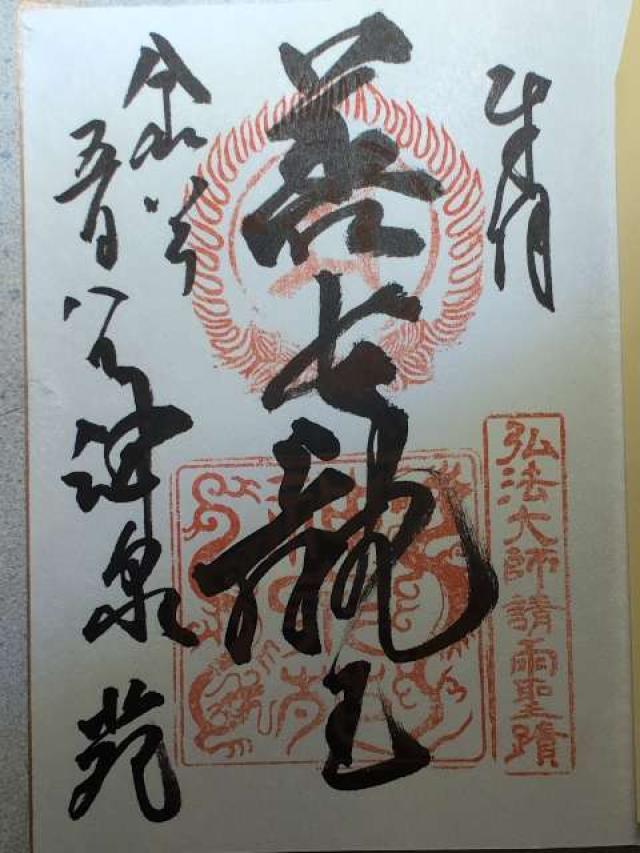 奉拝
弘法大師請雨聖蹟
善女龍王
令和
五月
神泉苑